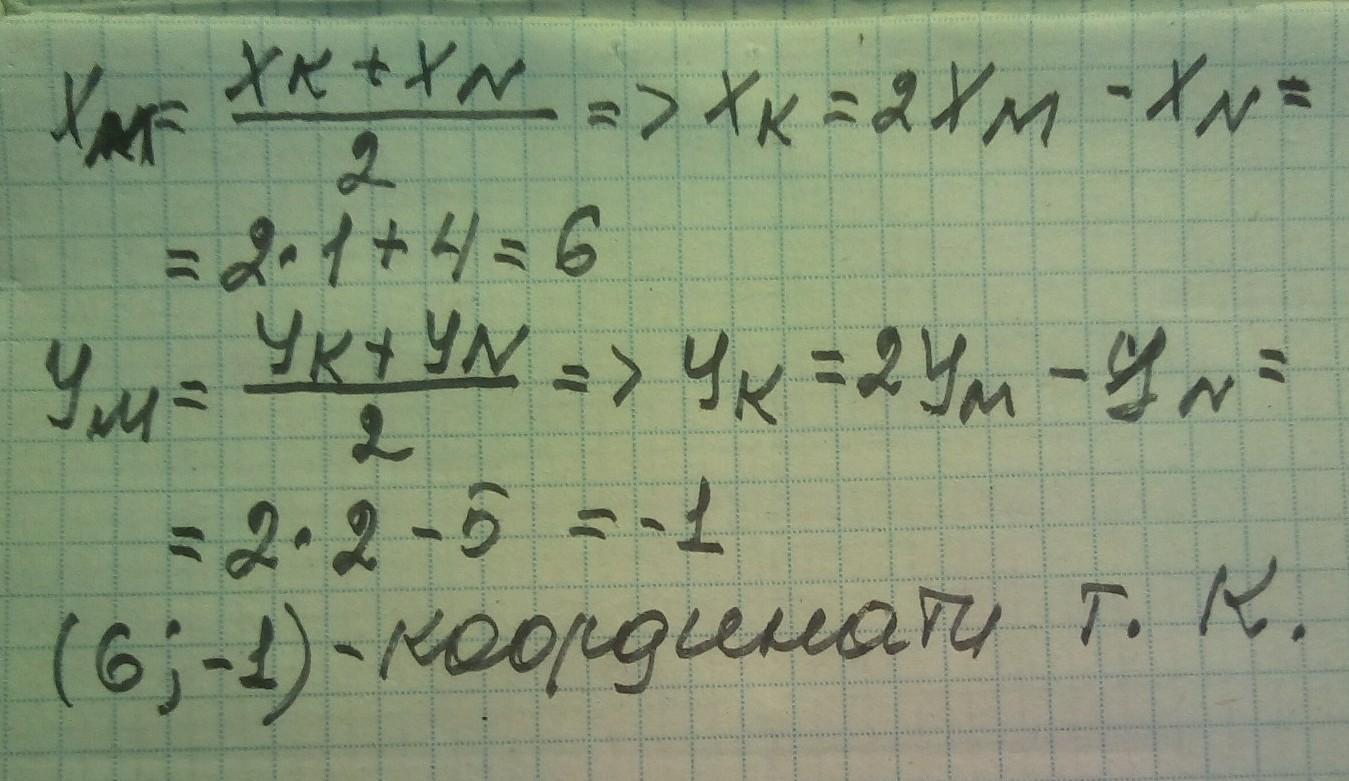 X_M = (X_K + X_N)/2 => X_K = 2X_M - X_N =
= 2·1+4=6
У_M = (У_K + У_N)/2 => У_K = 2У_M - У_N =
= 2·2-5 = -1
(6;-1)-координати т. К.